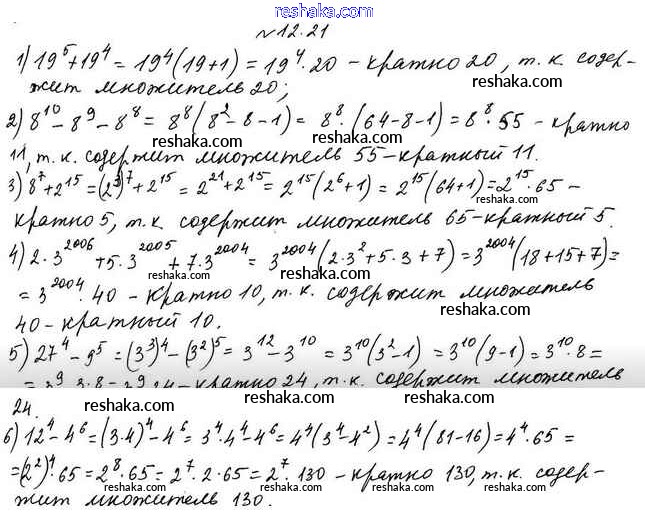 reshaka.com
№12.21
1) 19⁵+19⁴ = 19⁴(19+1) = 19⁴·20 – кратно 20, т.к. содер-
жит множитель 20;
reshaka.com reshaka.com
2) 8¹⁰–8⁹–8⁸ = 8⁸(8²–8–1) = 8⁸·(64–8–1) = 8⁸·55 – кратно
11, т.к. содержит множитель 55–кратный 11.
reshaka.com reshaka.com
3) 8⁷+2¹⁵ = (2³)⁷+2¹⁵ = 2²¹+2¹⁵ = 2¹⁵(2⁶+1) = 2¹⁵(64+1) = 2¹⁵·65 –
кратно 5, т.к. содержит множитель 65–кратный 5.
reshaka.com reshaka.com
4) 2·3²⁰⁰⁶+5·3²⁰⁰⁵+7·3²⁰⁰⁴ = 3²⁰⁰⁴(2·3²+5·3+7) = 3²⁰⁰⁴(18+15+7) =
reshaka.com reshaka.com
= 3²⁰⁰⁴·40 – кратно 10, т.к. содержит множитель
40–кратный 10.
reshaka.com reshaka.com
5) 27⁴–9⁵ = (3³)⁴–(3²)⁵ = 3¹²–3¹⁰ = 3¹⁰(3²–1) = 3¹⁰(9–1) = 3¹⁰·8 =
кратно 24, т.к. содержит множитель
24.
reshaka.com reshaka.com reshaka.com
6) 12⁴–4⁶ = (3·4)⁴–4⁶ = 3⁴·4⁴–4⁶ = 4⁴(3⁴–4²) = 4⁴(81–16) = 4⁴·65 =
= (2²)⁴·65 = 2⁸·65 = 2⁷·2·65 = 2⁷·130 – кратно 130, т.к. содер-
жит множитель 130.
reshaka.com reshaka.com reshaka.com